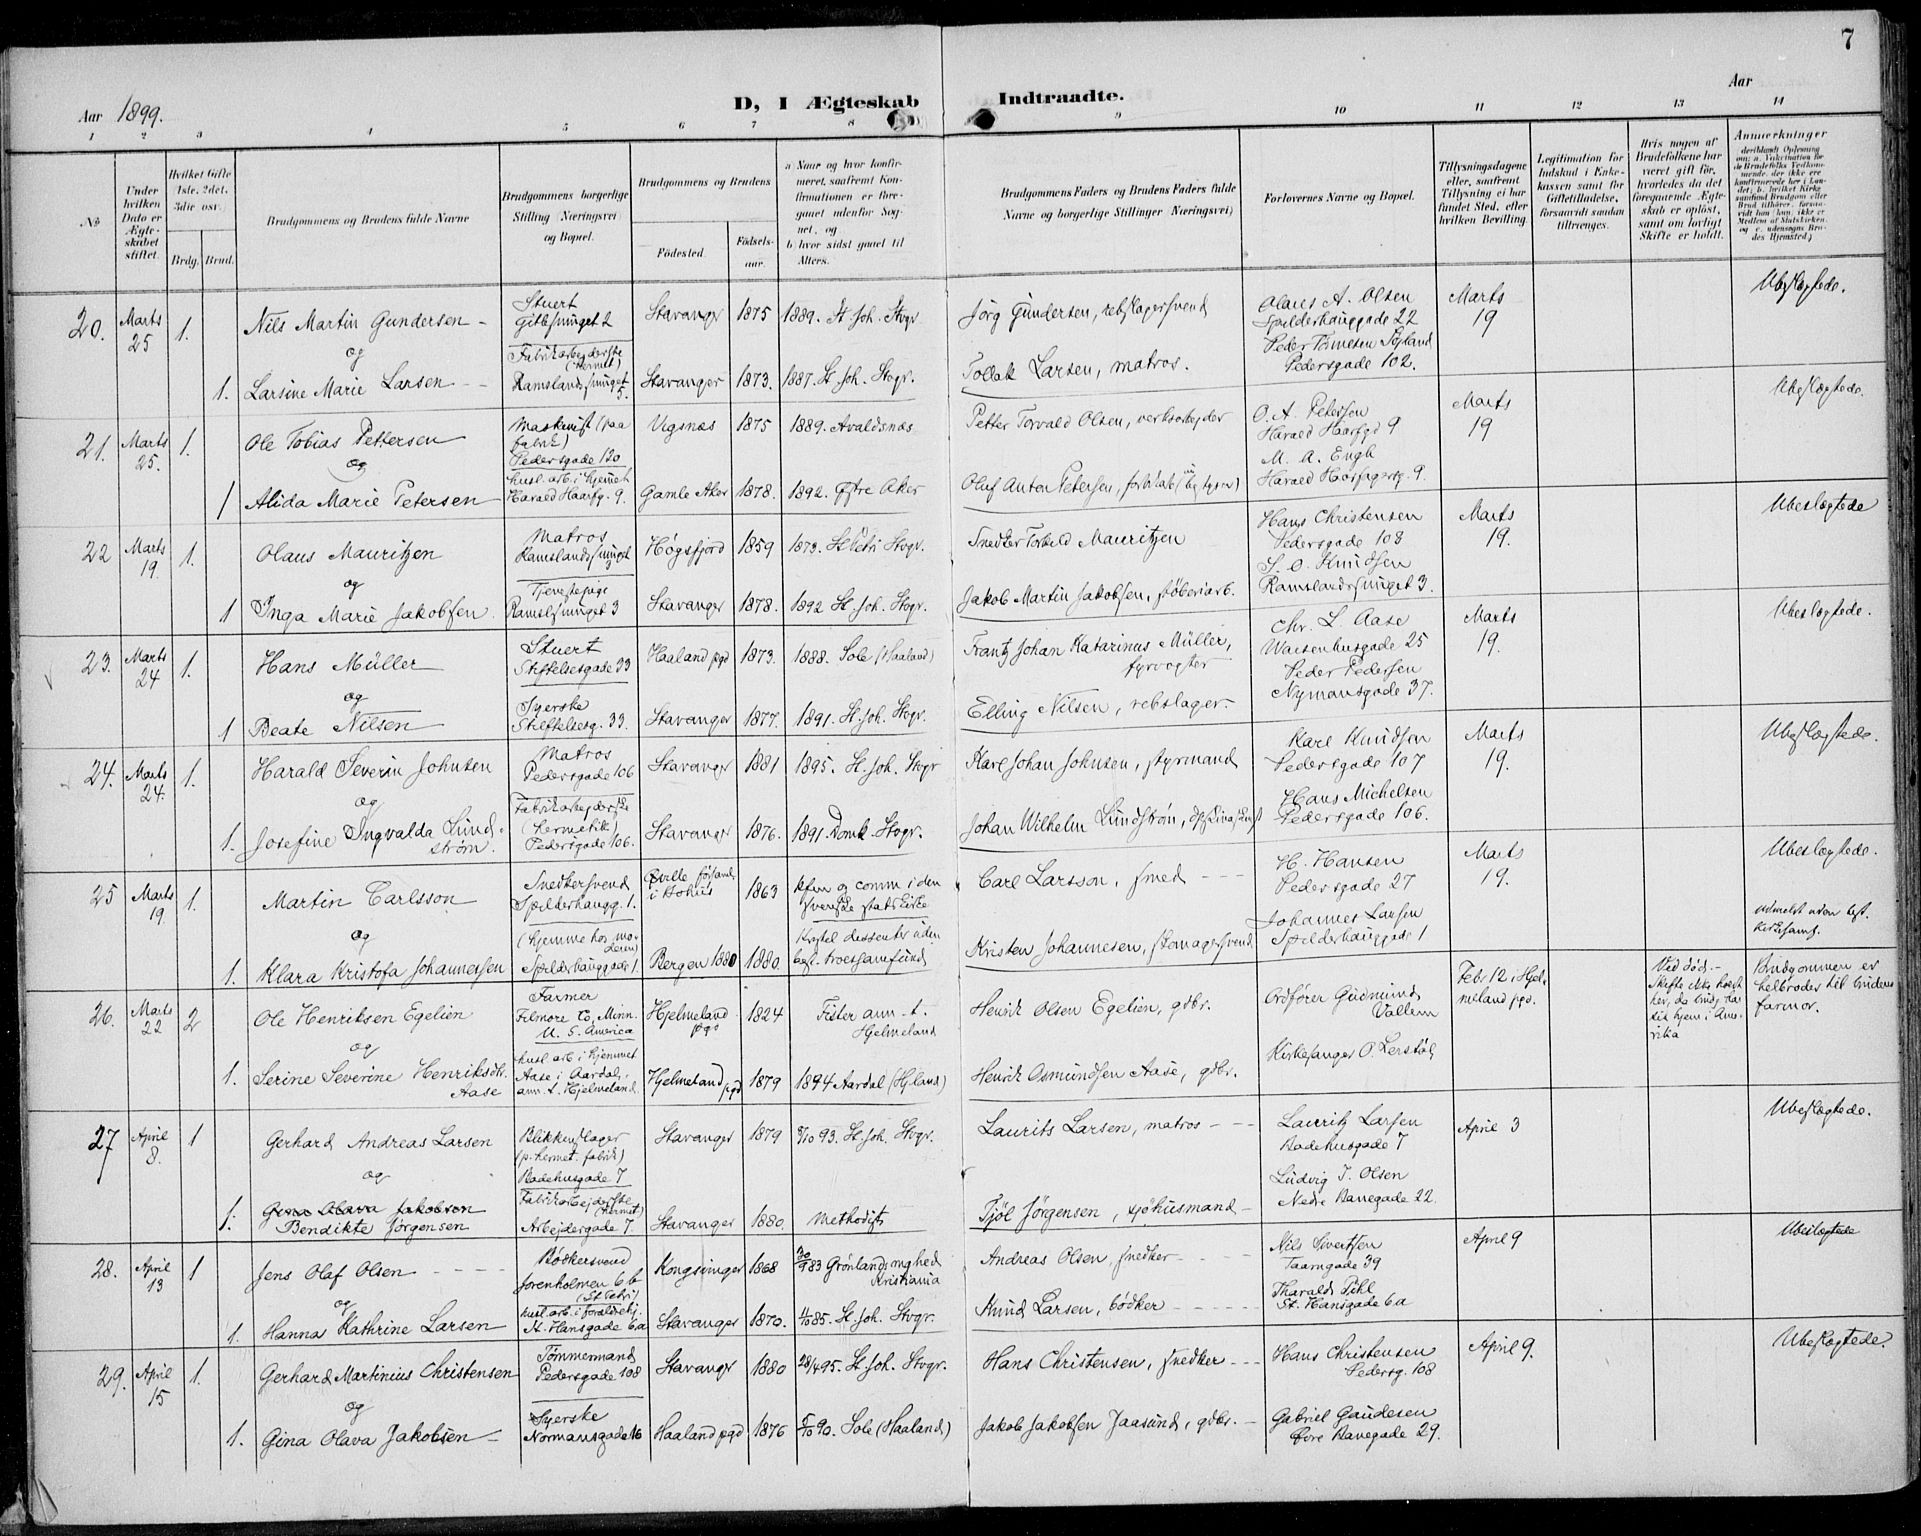 7
Aar 1899.
D, I Ægteskab Indtraadte.
Aar
1 2 3 4 5 6 7 8 9 10 11 12 13 14
No
Under hvilken Dato er Ægteskabet stiftet.
Hvilket Gifte 1ste, 2det, 3die osv.
Brdg. Brud.
Brudgommens og Brudens fulde Navne
Brudgommens borgerlige Stilling (Næringsvei) og Bopæl.
Brudgommens og Brudens
Fødested.
Fødselsaar.
a. Naar og hvor konfirmeret, saafremt Konfirmationen er foregaaet udenfor Sognet, og
b. hvor sidst gaaet til Alters.
Brudgommens Faders og Brudens Faders fulde Navne og borgerlige Stillinger (Næringsvei)
Forlovernes Navne og Bopæl.
Tillysningsdagene eller, saafremt Tillysning ei har fundet Sted, efter hvilken Bevilling
Legitimation for Indskud i Enkekassen samt for Giftetilladelse, forsaavidt saadan tiltrænges.
Hvis nogen af Brudefolkene har været gift før, hvorledes da det foregaaende Ægteskab er opløst, samt om lovligt Skifte er holdt.
Anmærkninger
20. Marts 25 1. Nils Martin Gundersen Stuert Gitlesmuget 2 Stavanger 1875 1889. St. Joh. Stvgr. Jörg Gundersen, rebslagersvend Olaus A. Olsen Spilderhauggade 22 Marts 19 Ubeslægtede.
og
1. Larsine Marie Larsen Fabrikarbejderske (hermet) Ramslandsmuget 5. Stavanger 1873. 1887. St. Joh. Stvgr. Tollak Larsen, matros. Peder Tönnesen Pedersgade 102.
21. Marts 25. 1. Ole Tobias Pettersen Maskinist (paa fabrik) Pedersgade 120 Vigsnæs 1875 1889. Avaldsnæs Petter Torvald Olsen, verksarbejder O. A. Petersen Harald Haarfgd 9 Marts 19 Ubeslægtede.
og
1 Alida Marie Petersen husl. arb. i hjemmet Harald Haarfg. 9. Gamle Aker 1878. 1892. Østre Aker Oluf Anton Petersen, M. A. Engh Harald Haarfagersg. 9.
22 Marts 19. 1. Olaus Mauritzen Matros Ramslandsmuget Høgsfjord 1859 1873. St. Petri Stvgr. Snedker Torkild Mauritzen Hans Christensen Pedersgade 108 Marts 19. Ubeslægtede
og
1 Inga Marie Jakobsen. Tjenestepige Ramslsmuget 3 Stavanger 1878. 1892 St. Joh. Stvgr. Jakob Martin Jakobsen, støberiarb. S. O. Knudsen Ramslandsmuget 3.
23. Marts 24 1. Hans Müller Stuert Stiftelsesgade 33 Haaland pgd 1873. 1888. Sole (Haaland) Frantz Johan Katarinus Müller, fyrvogter Chr. L. Aase Waisenhusgade 25 Marts 19. Ubeslægtede.
og
1 Beate Nilsen Syerske Stiftelsesg. 33. Stavanger 1877. 1891. St. Joh. Stvgr. Elling Nilsen, rebslager. Peder Pedersen Nymansgade 37.
24. Marts 24. 1. Harald Severin Johnsen Matros Pedersgade 106 Stavanger 1881 1895. St. Joh. Stvgr Karl Johan Johnsen, styrmand Karl Knudsen Pedersgade 107 Marts 19. Ubeslægtede.
og
1. Josefine Ingvalda Lundström. Fabrikarbejderske (hermetik) Pedersgade 106. Stavanger 1876. 1891. Domk. Stvgr. Johan Wilhelm Lundström, Hans Michelsen Pedersgade 106.
25 Marts 19 1. Martin Carlsson Snedkersvend Spilderhaugg. 1. Qville församl. i Bohus 1863 kfm og comm i den svenske statskirke Carl Larsson, smed H. Hansen Pedersgade 27 Marts 19. Ubeslægtede.
og
1. Klara Kristofa Johannesen (hjemme hos moderen) Spilderhauggade 1. Bergen 1880 1880. dessenter uden best. troessamfund Kristen Johannesen, skomagersvend Johannes Larsen Spilderhauggade 1 udmeldt uden best. kirkesamf.
26. Marts 22 2 Ole Henriksen Egelien Farmer Filmore Co, Minn. U. S. America Hjelmeland pgd 1824 Fister ann. t. Hjelmeland Henrik Olsen Egelien, gdbr. Ordfører Gudmund Vallem Feb. 12 i Hjelmeland pgd. Ved død. Skifte ikke holdt her, da hans hjem i Amerika Brudgommen er helbroder til brudens farmor.
og
1. Serine Severine Henriksdtr. Aase husl. arb. i hjemmet Aase i Aardal, ann. t. Hjelmeland. Hjelmeland pgd 1879 1894 Aardal (Hjland) Henrik Osmundsen Aase, gdbr. Kirkesanger O. Lerstøl
27 April 8. 1 Gerhard Andreas Larsen Blikkenslager (p. hermet. fabrik) Badehusgade 7 Stavanger 1879 /10 93. St. Joh. Stvgr. Laurits Larsen, matros Lauritz Larsen Badehusgade 7 April 3 Ubeslægtede.
og
1. Gina Olava Jakobsen Bendikte Jørgensen Fabrikarbejderske (hermet) Arbejdergade 7. Stavanger 1880. Methodist Tjöl Jørgensen, sjøhusmand Ludvig J. Olsen Nedre Banegade 22.
28. April 13 1 Jens Olaf Olsen Bödkersvend Jorenholmen 6b (St Petri) Kongsvinger 1868 30/9 83 Grønlands mghed Kristiania Andreas Olsen, snedker Nils Sivertsen Taarngade 39 April 9 Ubeslægtede
og
1. Hanna Kathrine Larsen husl. arb. i forældrehj. St. Hansgade 6a Stavanger 1870. 4/10 85. St. Joh. Stvgr. Knud Larsen, bödker Tharald Pihl St. Hansgade 6a
29. April 15 1. Gerhard Martinius Christensen Tömmermand Pedersgade 108 Stavanger 1880 28/4 95. St. Joh. Stvgr. Hans Christensen, snedker Hans Christensen Pedersg. 108 April 9. Ubeslægtede.
og
1. Gina Olava Jakobsen Syerske Normansgade 16 Haaland pgd 1876 5/10 90. Sole (Haaland) Jakob Jakobsen Jaasund, gdbr. Gabriel Gaudesen Øvre Banegade 29.